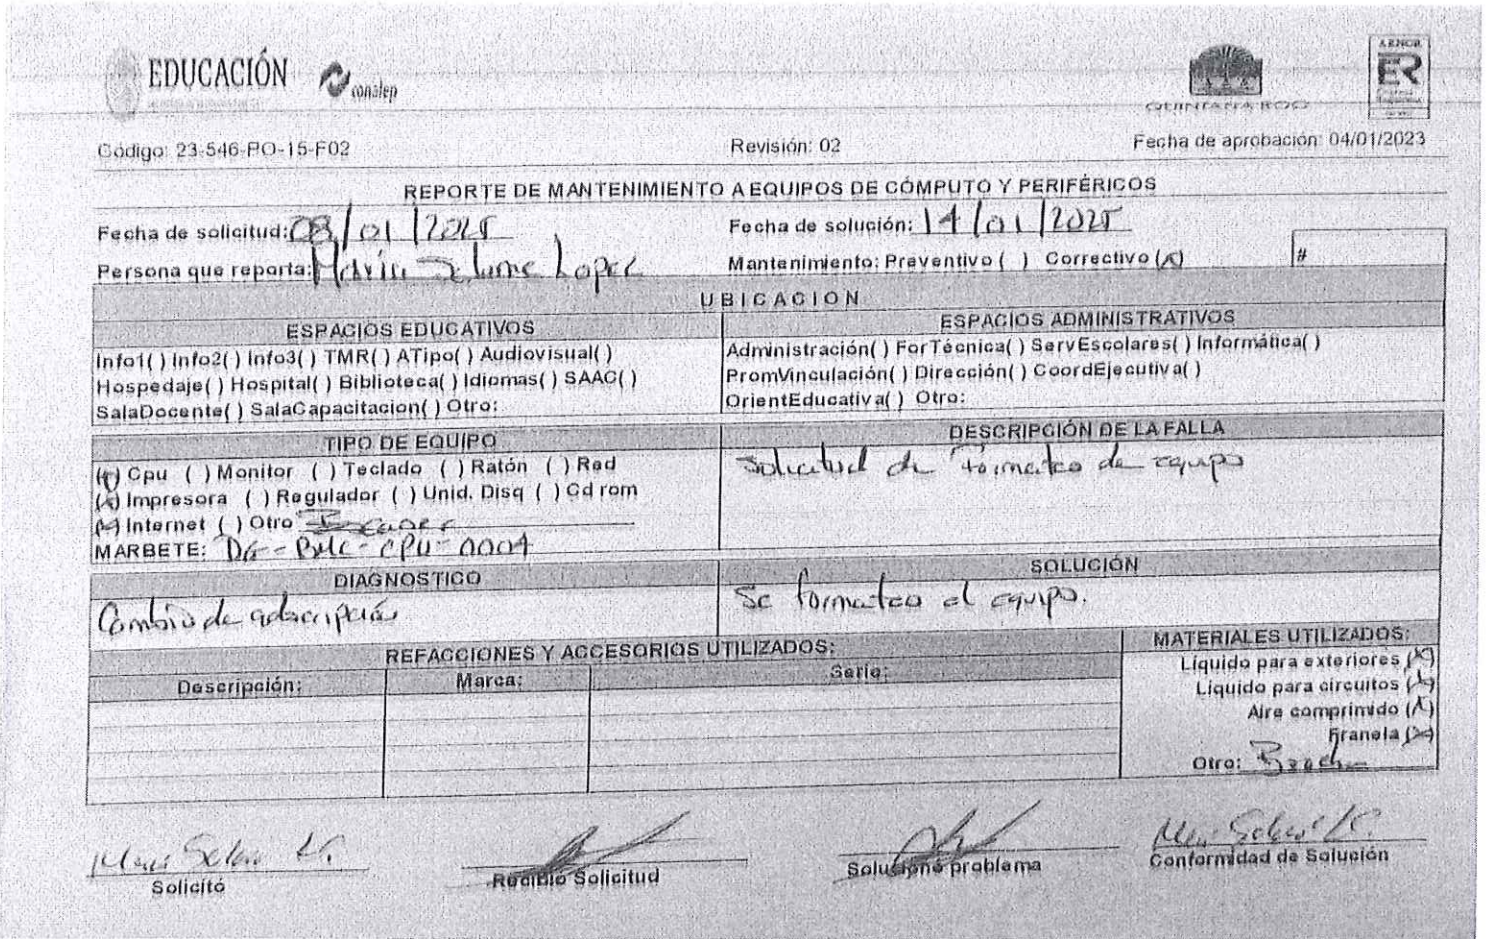 EDUCACIÓN
conalep
QUINTANA ROO
AENOR
ER
Código: 23-546-PO-15-F02 Revisión: 02 Fecha de aprobación: 04/01/2023
REPORTE DE MANTENIMIENTO A EQUIPOS DE CÓMPUTO Y PERIFÉRICOS
Fecha de solicitud: 08/01/2025 Fecha de solución: 14/01/2025
Persona que reporta: Lopez Mantenimiento: Preventivo ( ) Correctivo (x) #
UBICACION
ESPACIOS EDUCATIVOS ESPACIOS ADMINISTRATIVOS
Info1( ) Info2( ) Info3( ) TMR( ) ATipo( ) Audiovisual( )
Hospedaje( ) Hospital( ) Biblioteca( ) Idiomas( ) SAAC( )
SalaDocente( ) SalaCapacitacion( ) Otro:
Administración( ) ForTécnica( ) ServEscolares( ) Informática( )
PromVinculación( ) Dirección( ) CoordEjecutiva( )
OrientEducativa( ) Otro:
TIPO DE EQUIPO DESCRIPCIÓN DE LA FALLA
(x) Cpu ( ) Monitor ( ) Teclado ( ) Ratón ( ) Red
(x) Impresora ( ) Regulador ( ) Unid. Disq ( ) Cd rom
(x) Internet ( ) Otro
MARBETE: CPU-0004
Solicitud de formateo de equipo
DIAGNOSTICO SOLUCIÓN
Cambio de adscripción Se formateo el equipo.
REFACCIONES Y ACCESORIOS UTILIZADOS: MATERIALES UTILIZADOS:
Descripción: Marca: Serie:
Líquido para exteriores (x)
Líquido para circuitos (x)
Aire comprimido (x)
Franela (x)
Otro: Brocha
Solicitó Recibió Solicitud Solucionó problema Conformidad de Solución